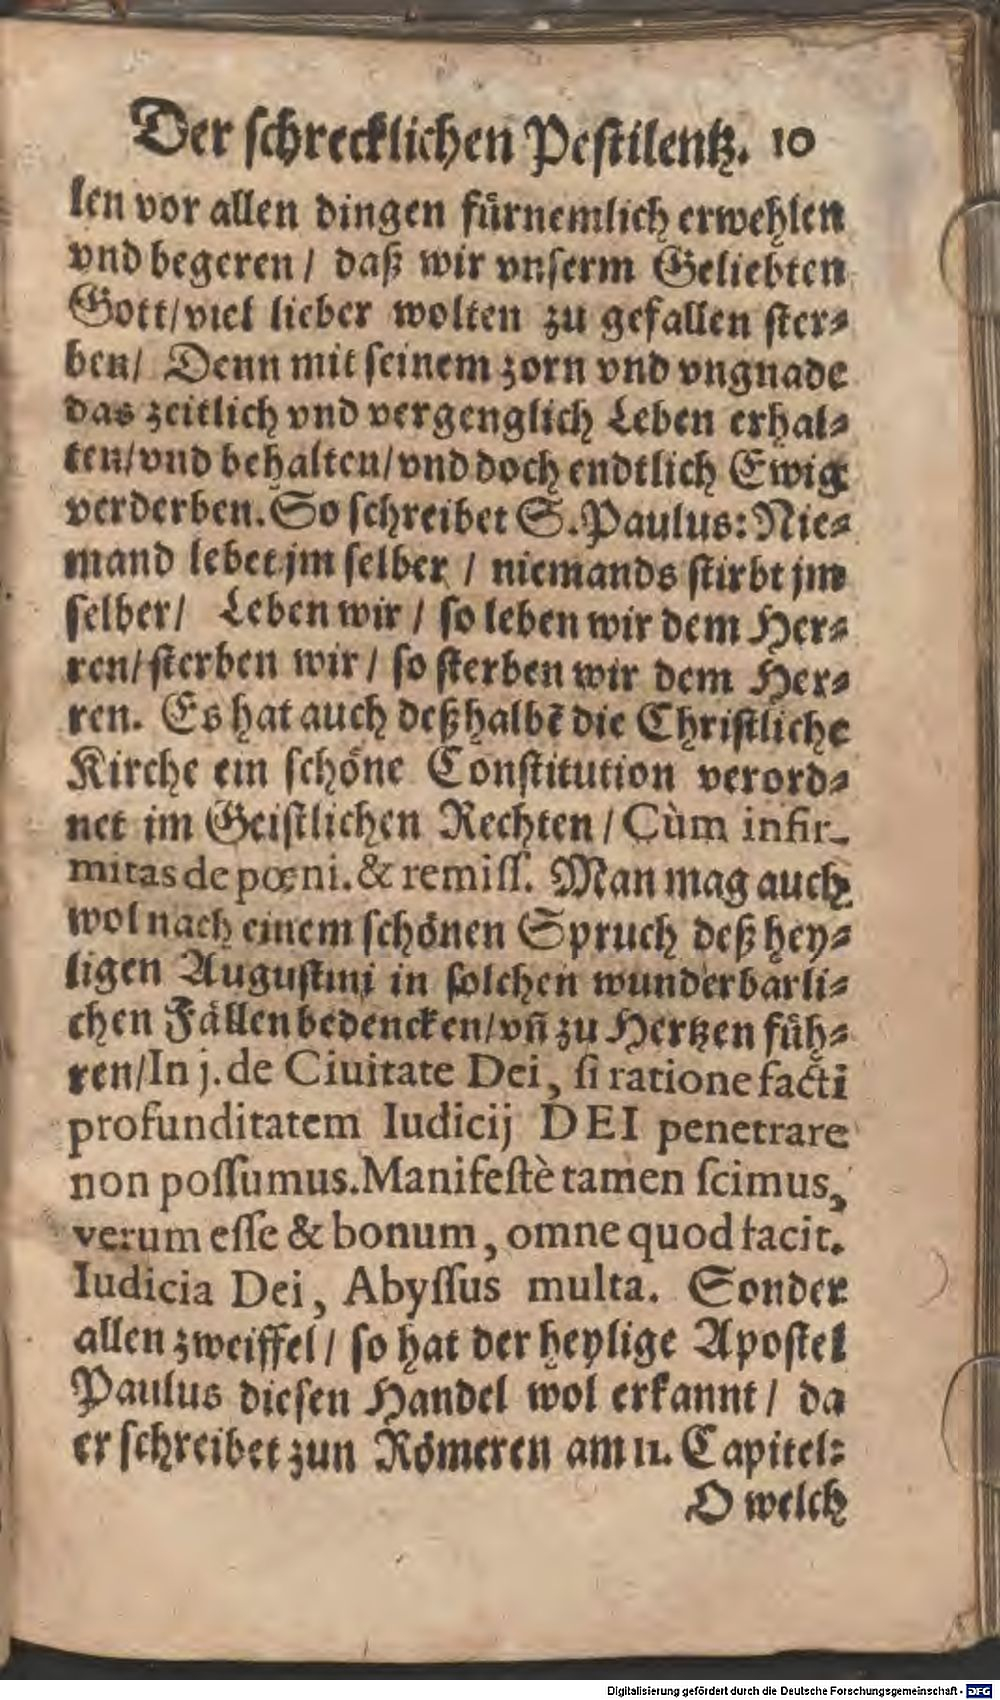 Der schrecklichen Pestilentz. 10
len vor allen dingen fürnemlich erwehlen
vnd begeren / daß wir vnserm Geliebten
Gott/viel lieber wolten zu gefallen ster⸗
ben/ Denn mit seinem zorn vnd vngnade
das zeitlich vnd vergenglich Leben erhal⸗
ten/vnd behalten/vnd doch endtlich Ewig
verderben. So schreibet S. Paulus: Nie⸗
mand lebet jm selber / niemands stirbt jm
selber/ Leben wir / so leben wir dem Her⸗
ren/sterben wir / so sterben wir dem Her⸗
ren. Es hat auch deßhalbē die Christliche
Kirche ein schöne Constitution verord⸗
net im Geistlichen Rechten / Cùm infir-
mitas de pœni. & remiss. Man mag auch
wol nach einem schönen Spruch deß hey⸗
ligen Augustini in solchen wunderbarli⸗
chen Fällen bedencken/vñ zu Hertzen füh⸗
ren/In j. de Ciuitate Dei, si ratione facti
profunditatem Iudicij DEI penetrare
non possumus. Manifestè tamen scimus,
verum esse & bonum, omne quod facit.
Iudicia Dei, Abyssus multa. Sonder
allen zweiffel / so hat der heylige Apostel
Paulus diesen Handel wol erkannt / da
er schreibet zun Römeren am 11. Capitel:
O welch
Digitalisierung gefördert durch die Deutsche Forschungsgemeinschaft - DFG